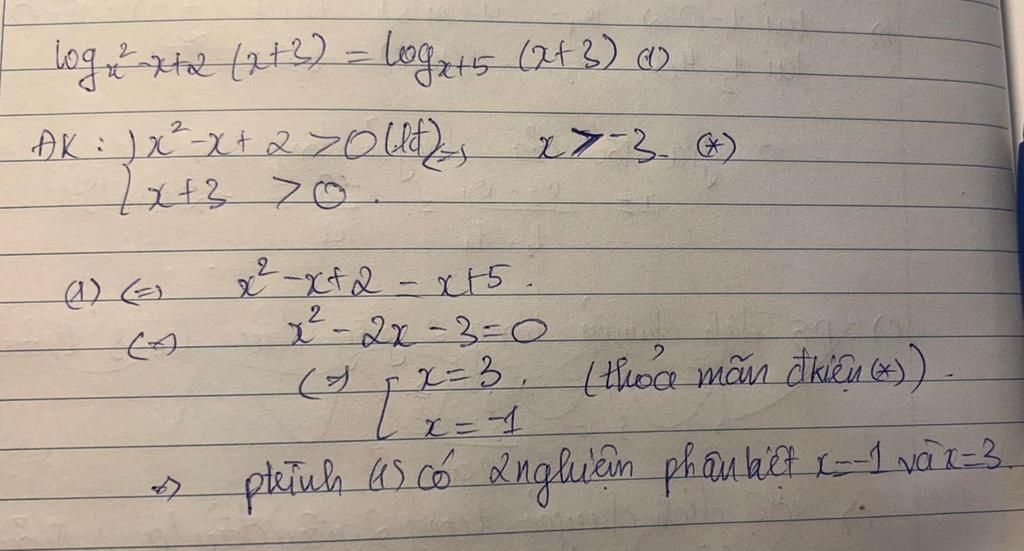 log_{x²-x+2} (x+3) = log_{x+5} (x+3) (1)
ĐK : { x² - x + 2 > 0 (lđ) ⇔ x > -3. (*)
{ x + 3 > 0.
(1) ⇔ x² - x + 2 = x + 5.
⇔ x² - 2x - 3 = 0
⇔ [ x = 3. (thỏa mãn đkiện (*)).
[ x = -1
⇒ ptrình (1) có 2 nghiệm phân biệt x = -1 và x = 3.